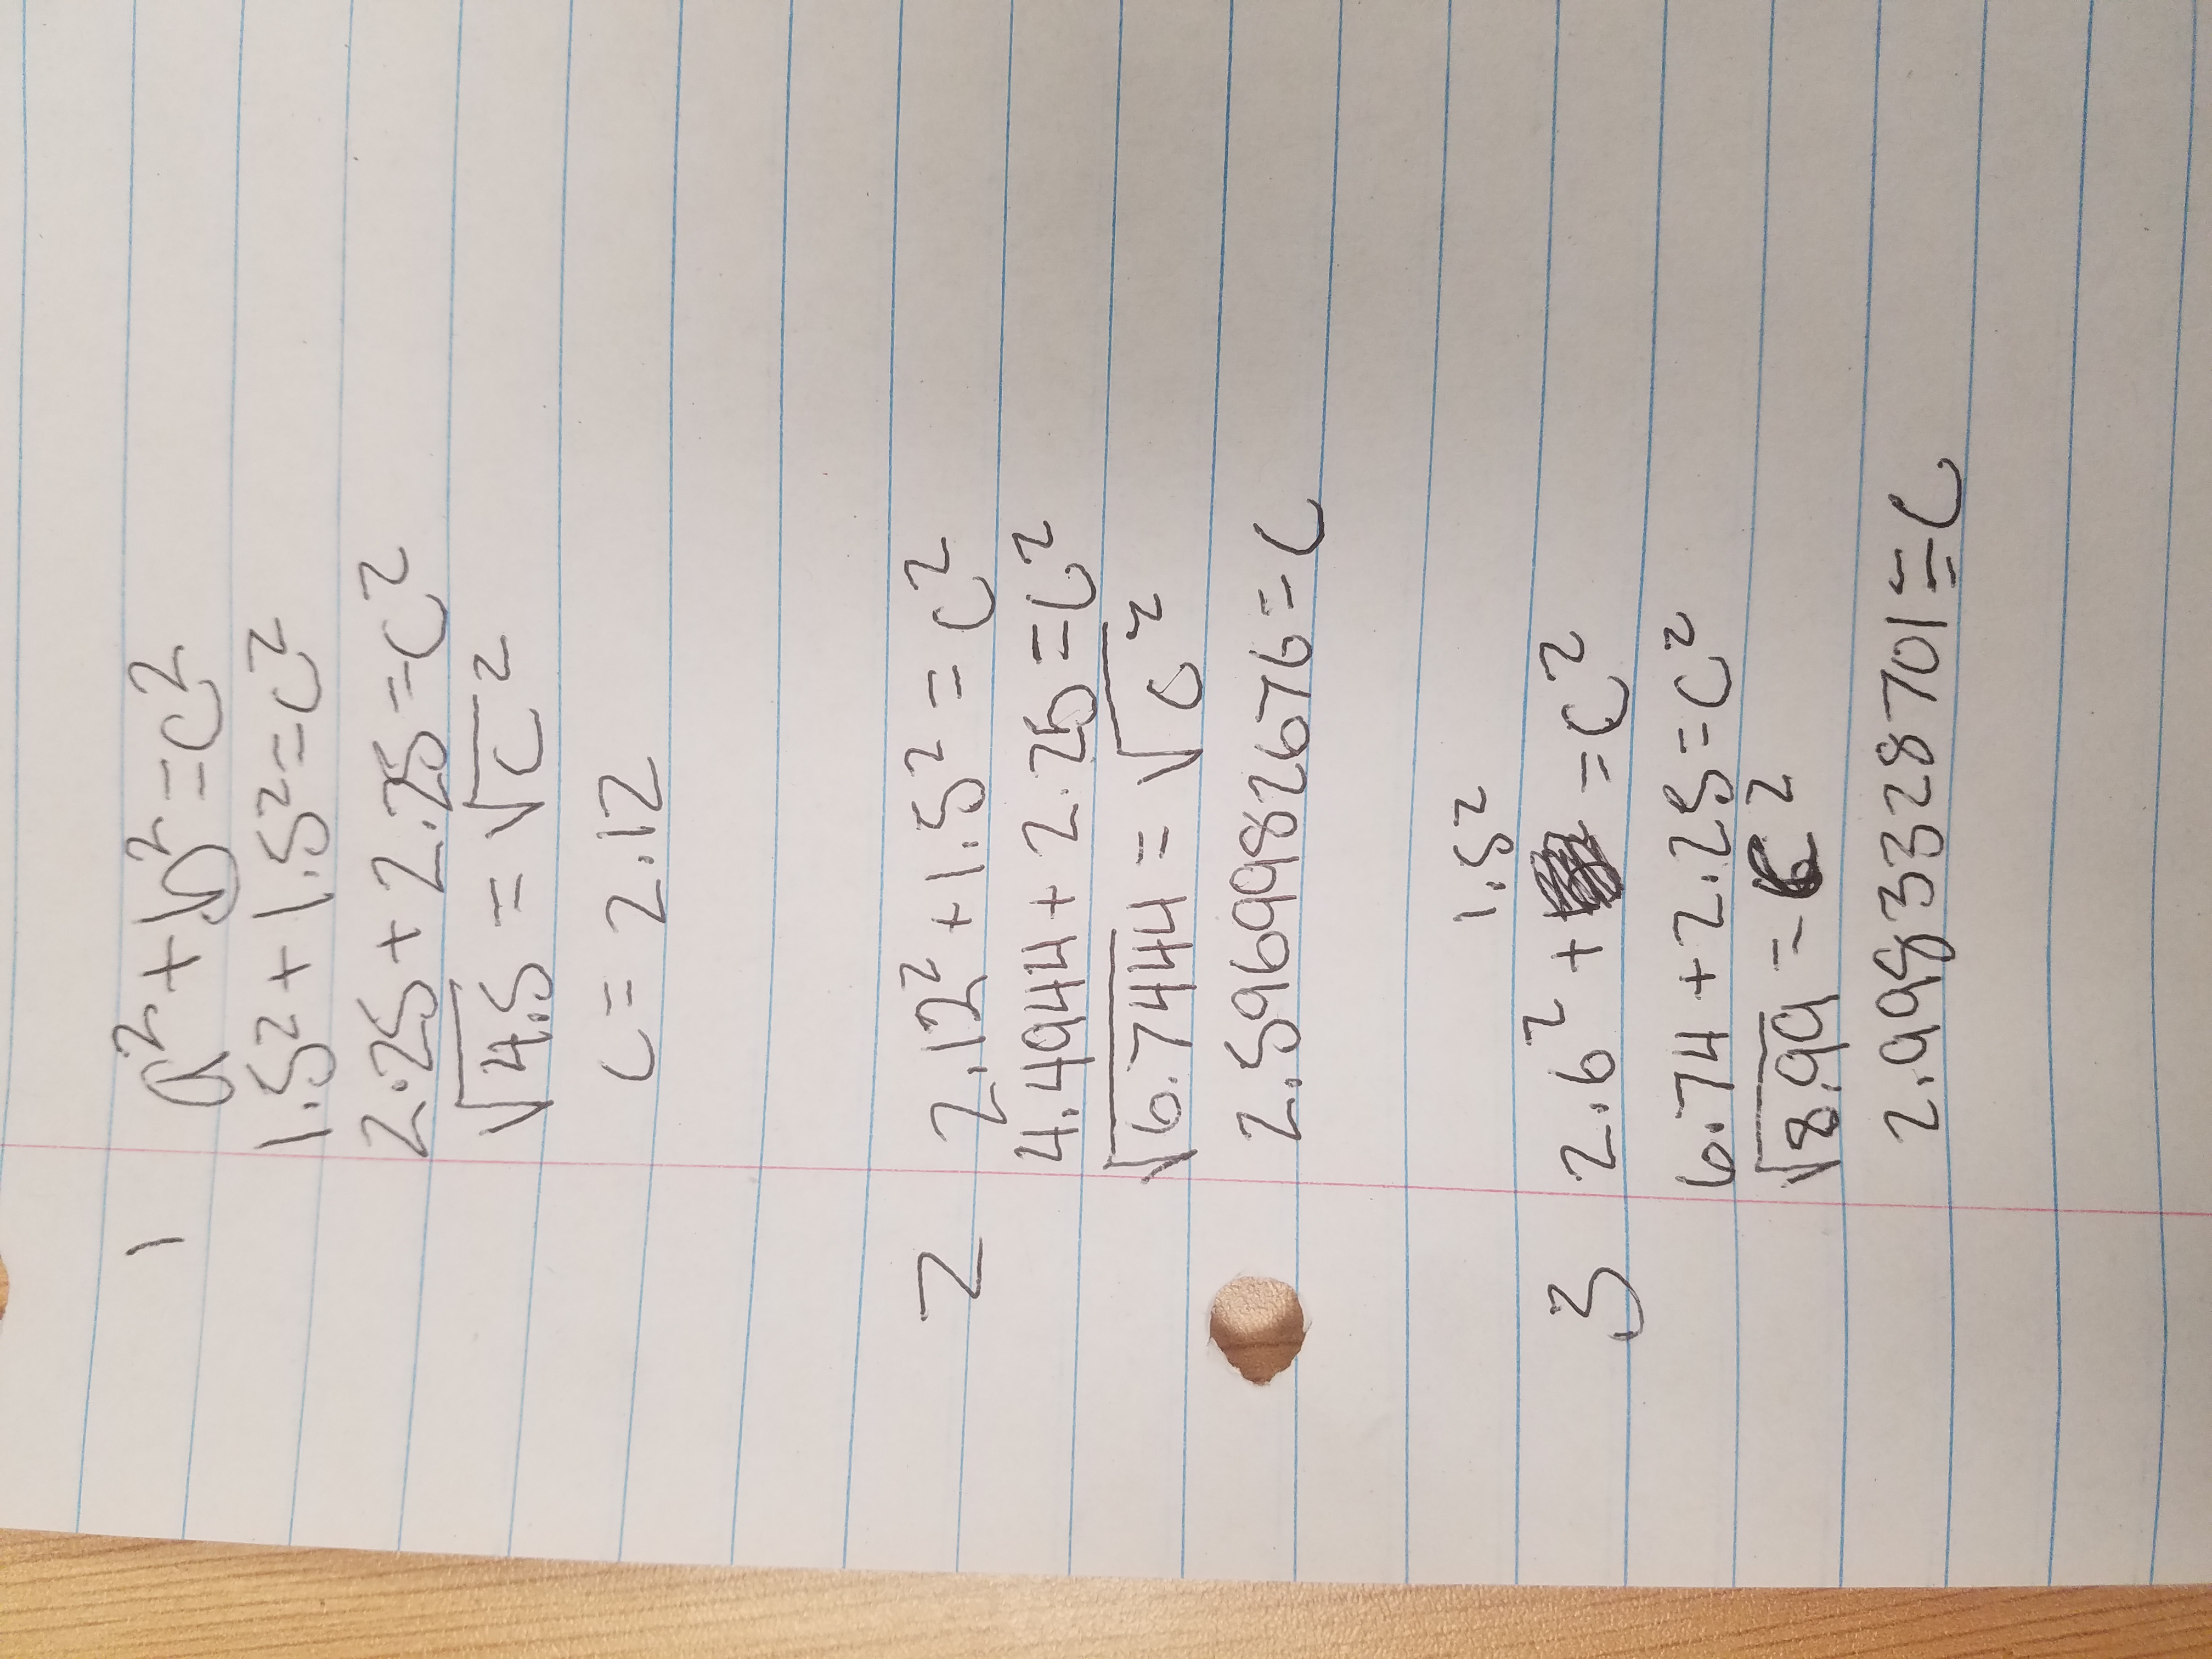 1 a² + b² = c²
1.5² + 1.5² = c²
2.25 + 2.25 = c²
√4.5 = √c²
c = 2.12
2 2.12² + 1.5² = c²
4.4944 + 2.25 = c²
√6.7444 = √c²
2.596998267 6 = c
1.5²
3 2.6² + = c²
6.74 + 2.25 = c²
√8.99 = c²
2.998332870 1 = c